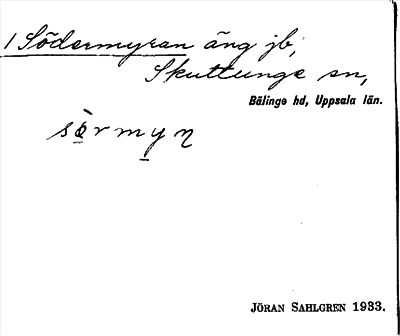 1 Södermyran äng jb,
Skuttunge sn,
Bälinge hd, Uppsala län.
sèrmyn
JÖRAN SAHLGREN 1933.